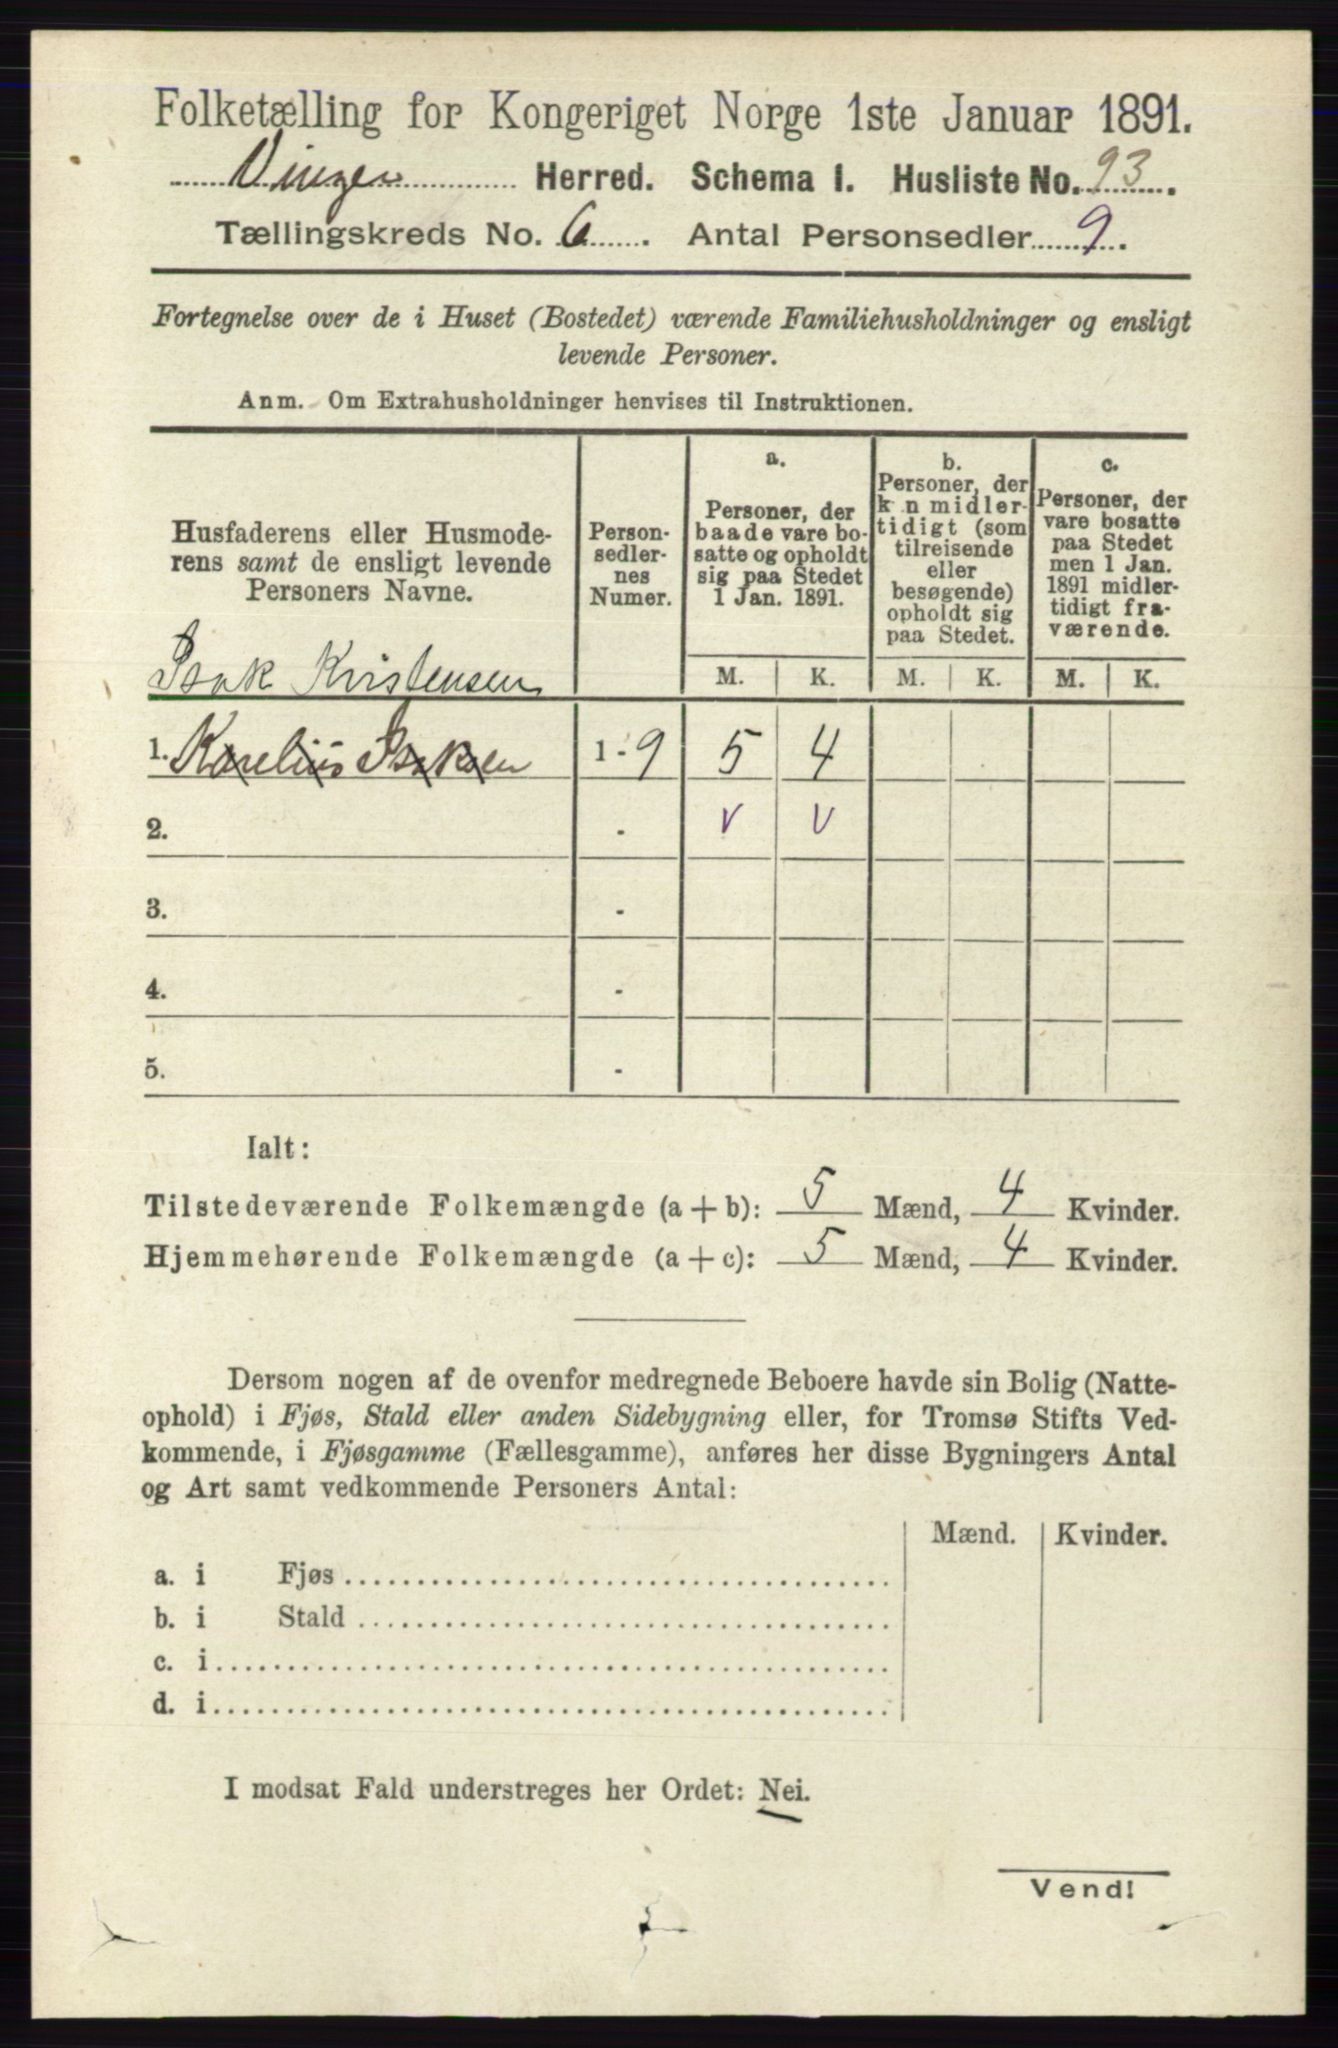 Folketælling for Kongeriget Norge 1ste Januar 1891.
Vinger Herred. Schema I. Husliste No. 93.
Tællingskreds No. 6. Antal Personsedler 9.
Fortegnelse over de i Huset (Bostedet) værende Familiehusholdninger og ensligt
levende Personer.
Anm. Om Extrahusholdninger henvises til Instruktionen.
Husfaderens eller Husmode-
rens samt de ensligt levende
Personers Navne.
Person-
sedler-
nes
Numer.
a.
Personer, der
baade vare bo-
satte og opholdt
sig paa Stedet
1 Jan. 1891.
b.
Personer, der
k n midler-
tidigt (som
tilreisende
eller
besøgende)
opholdt sig
paa Stedet.
c.
Personer, der
vare bosatte
paa Stedet
men 1 Jan.
1891 midler-
tidigt fra-
værende.
M. K. M. K. M. K.
Isak Kristensen
1. Karelius Isaksen 1 - 9 5 4
2. - v v
3. -
4. -
5. -
Ialt:
Tilstedeværende Folkemængde (a + b): 5 Mænd, 4 Kvinder.
Hjemmehørende Folkemængde (a + c): 5 Mænd, 4 Kvinder.
Dersom nogen af de ovenfor medregnede Beboere havde sin Bolig (Natte-
ophold) i Fjøs, Stald eller anden Sidebygning eller, for Tromsø Stifts Ved-
kommende, i Fjøsgamme (Fællesgamme), anføres her disse Bygningers Antal
og Art samt vedkommende Personers Antal:
Mænd. Kvinder.
a. i Fjøs
b. i Stald
c. i
d. i
I modsat Fald understreges her Ordet: Nei.
Vend!